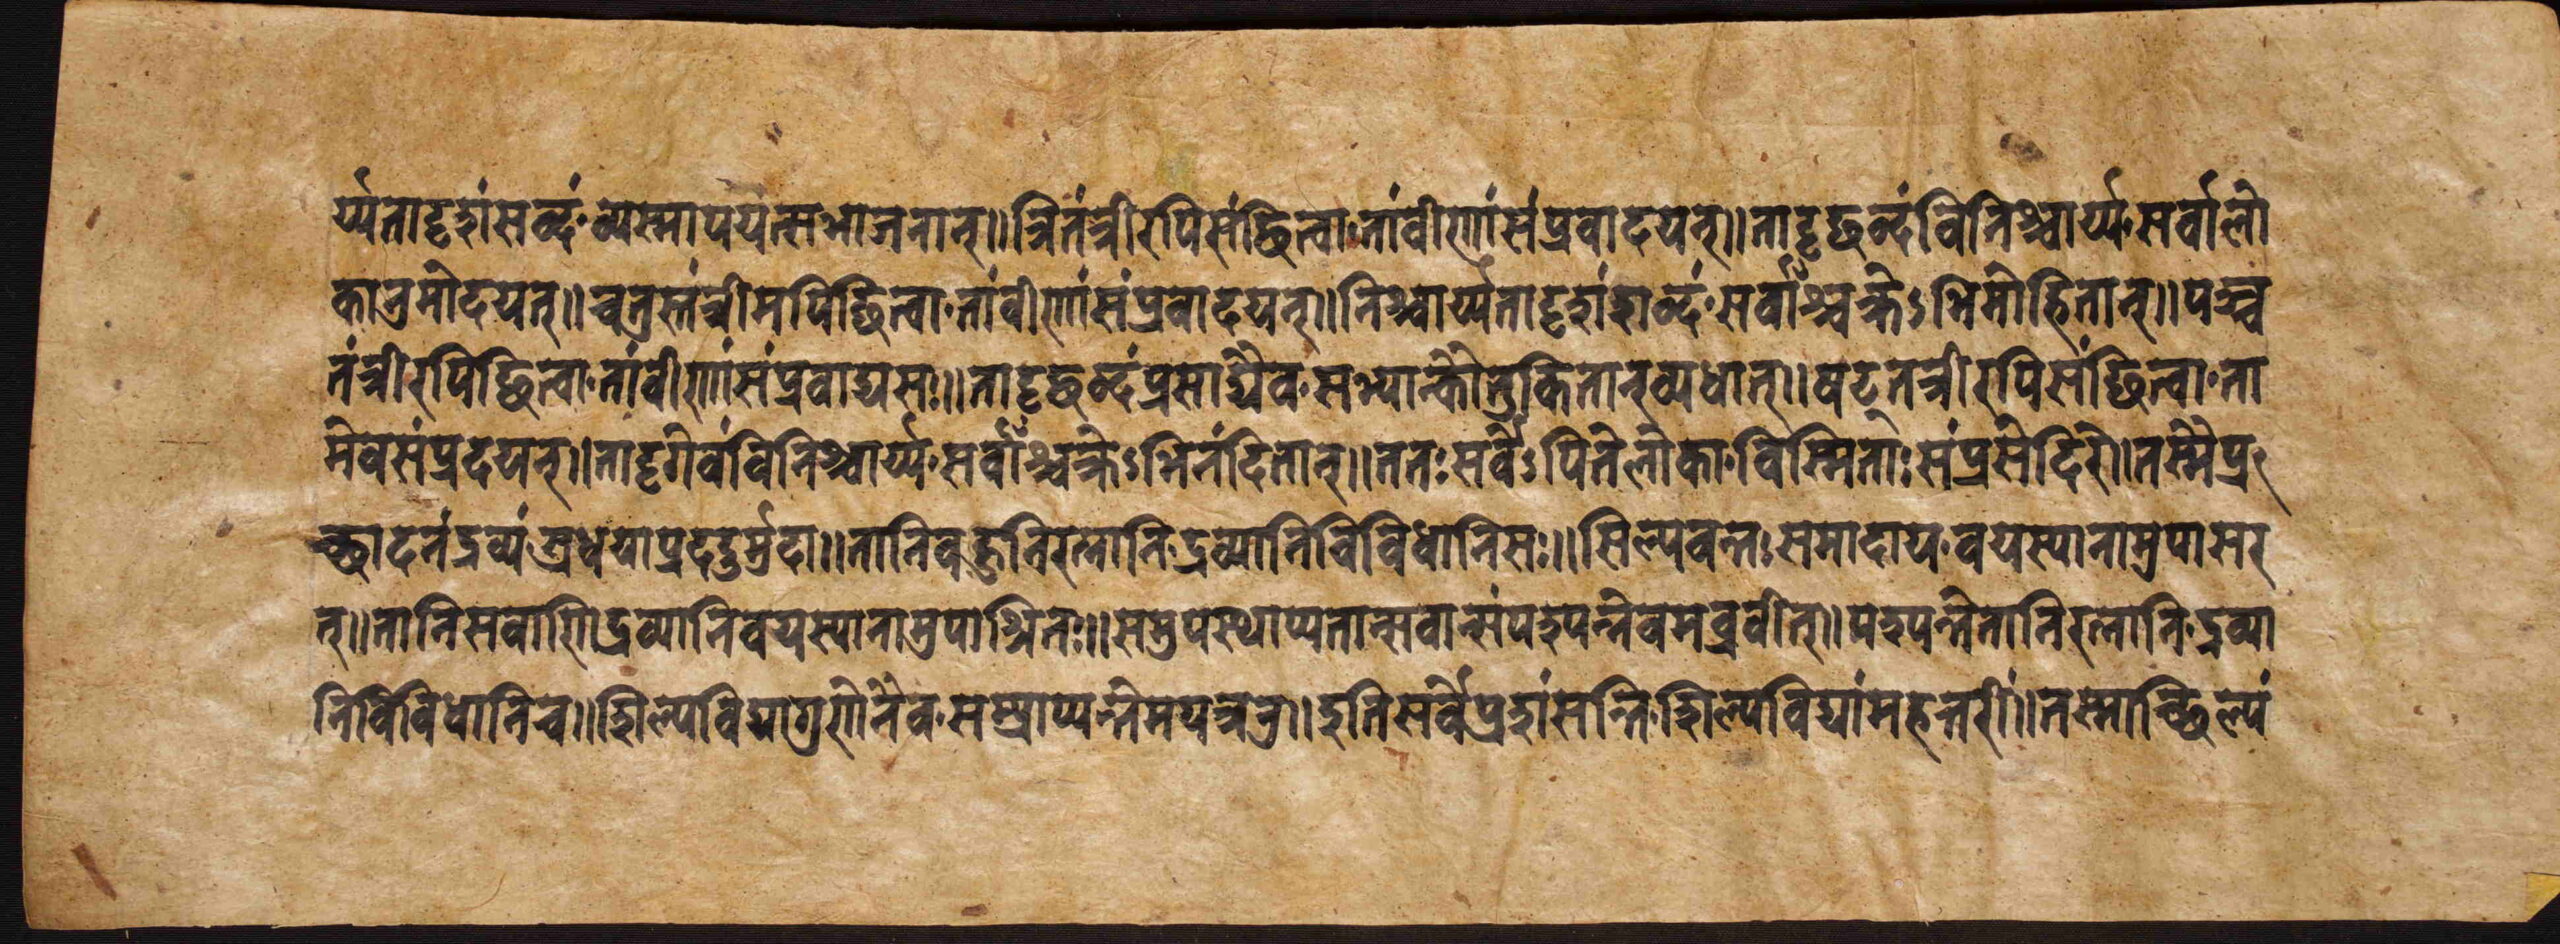 र्य्यतादृशंसब्दं, व्यस्मापयत्सभाजनान्॥त्रितंत्रीरपिसंछित्वा, तांवीणांसंप्रवादयन्॥तादृछब्दंविनिश्चार्य्य, सर्वाल्लो
कानमोदयत्॥चतुस्तंत्रीमपिछित्वा, तांवीणांसंप्रवादयन्॥निश्चार्य्यतादृशंशब्दं, सर्वाँश्चक्रेऽभिमोहितान्॥पञ्च
तंत्रीरपिछित्वा, तांवीणांसंप्रवाद्यसः॥तादृछब्दंप्रसाद्यैव, सभ्यान्कौतुकितान्व्यधात्॥षट्तन्त्रीरपिसंछित्वा, ता
मेवसंप्रदयन्॥तादृगेवंविनिश्चार्य्य, सर्वाँश्चक्रेऽभिनंदितान्॥ततःसर्वेऽपितेलोका, विस्मिताःसंप्रसेदिरे॥तस्मैप्र
च्छादनंद्रव्यं, श्रधयाप्रददुर्मुदा॥तानिबहुनिरत्नानि, द्रव्यानिविविधानिसः॥सिल्पवन्तःसमादाय, वयस्यानामुपासर
त्॥तानिसर्वाणिद्रव्यानिवयस्यानामुपाश्रितः॥समुपस्थाप्यतान्सर्वान्संपश्यन्नेवमब्रवीत्॥पश्यन्तेतानिरत्नानि, द्रव्या
निविविधानिच॥शिल्पविद्यागुणेनैव, सम्प्राप्यन्तेमयात्रतु॥इतिसर्वेप्रशंसन्ति, शिल्पविद्यांमहत्तरीं॥तस्माच्छिल्पं